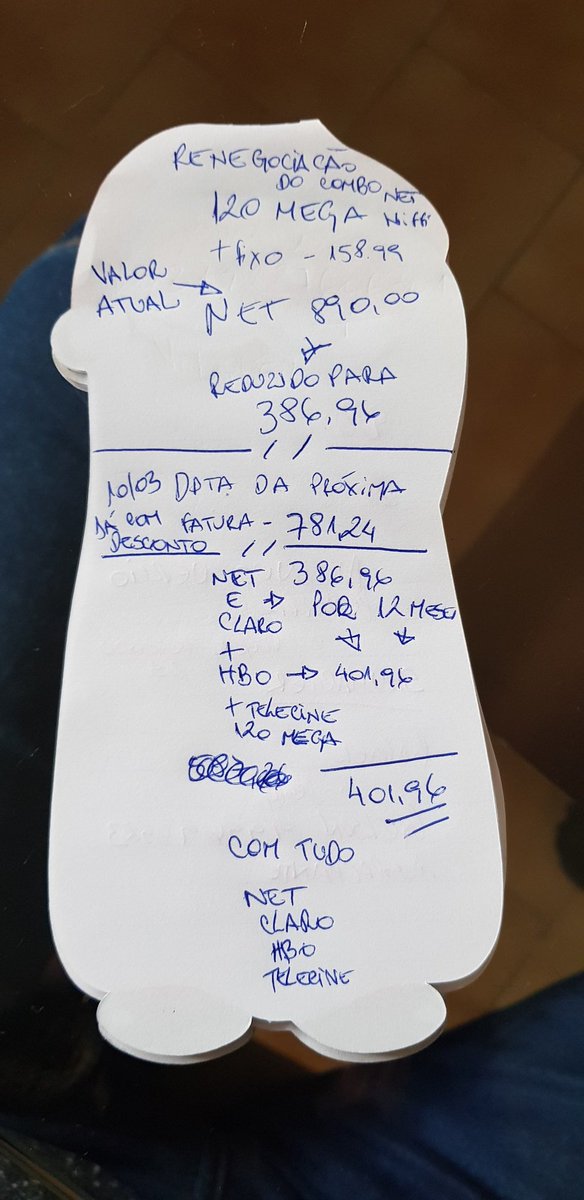 RENEGOCIAÇÃO
DO COMBO NET
120 MEGA
+ fixo - 158.99
VALOR
ATUAL
NET 890,00
REDUZIDO PARA
386,96
//
10/03 DATA DA PRÓXIMA
JÁ COM FATURA - 781,24
DESCONTO //
NET 386,96
E → POR 12 MESES
CLARO
+
HBO → 401,96
+ TELECINE
120 MEGA
401,96
COM TUDO
NET
CLARO
HBO
TELECINE